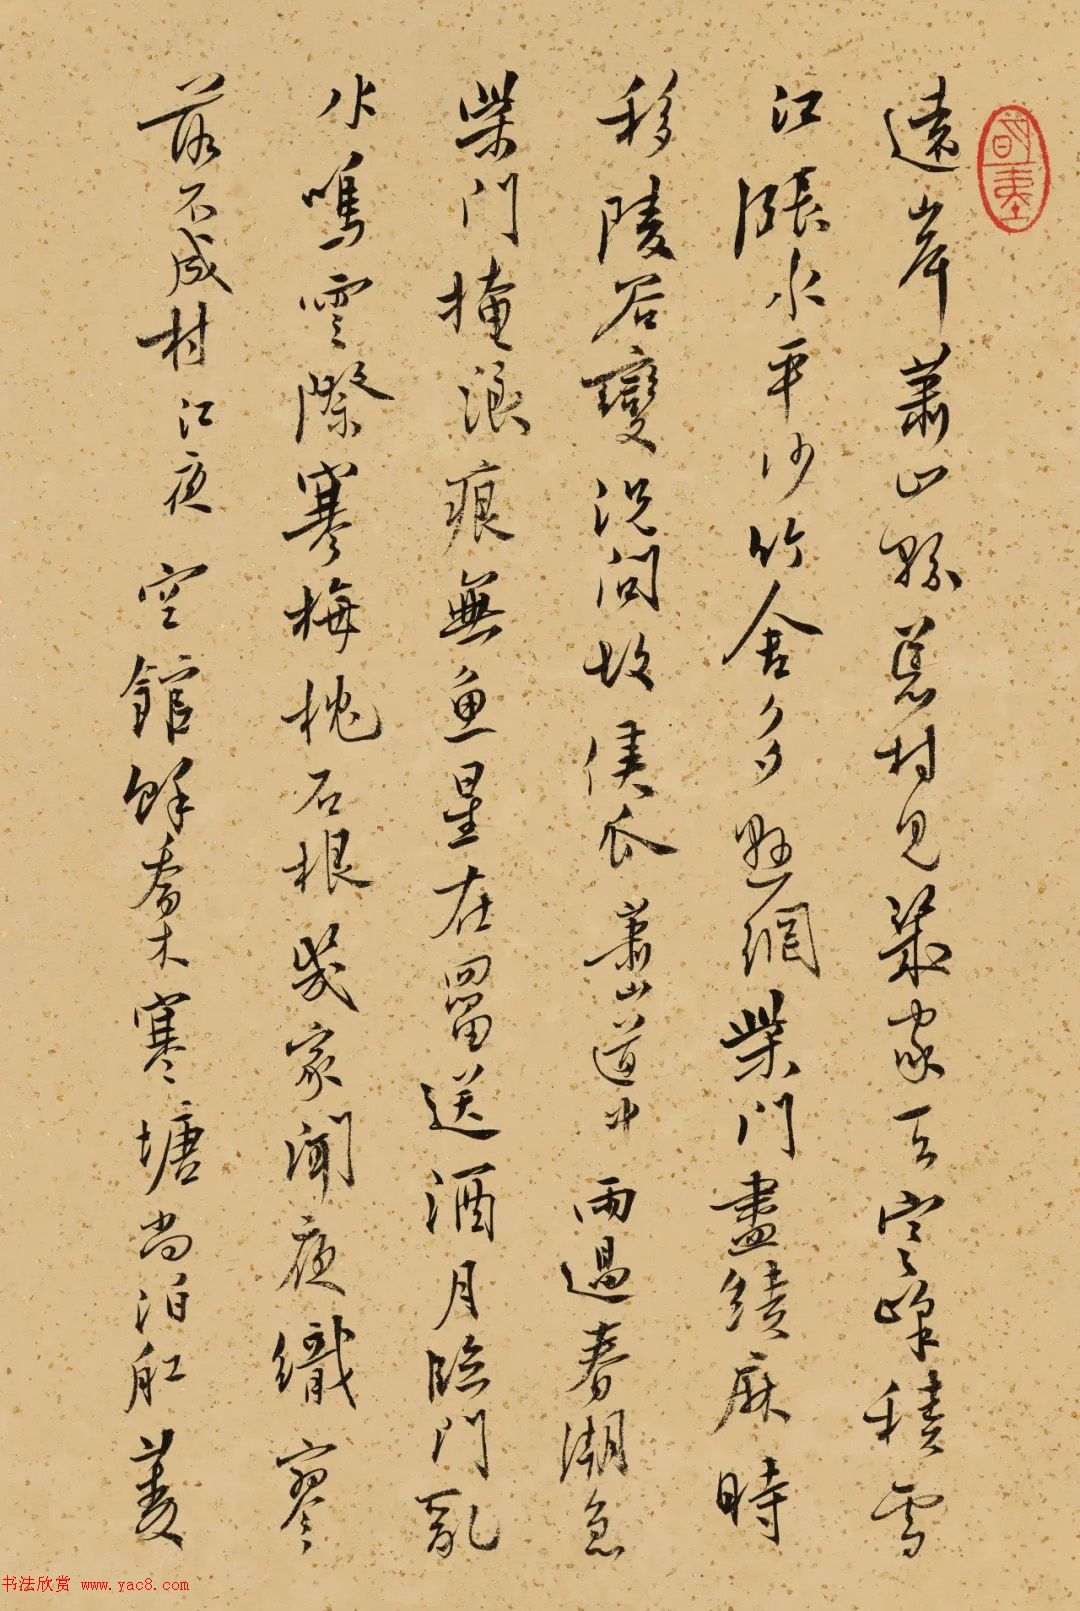 遠岸蕭山縣荒村見幾家天寒峰積雪
江漲水平沙竹舍多懸網柴門盡績麻時
移陵谷變況問故侯瓜 蕭山道中 雨過春潮急
柴門掩浪痕無魚星在罶送酒月臨門亂
水鳴雲際寒梅挽石根幾家聞夜織寥
落不成村 江夜 空館餘喬木寒塘尚泊舡菱
书法欣赏 www.yac8.com